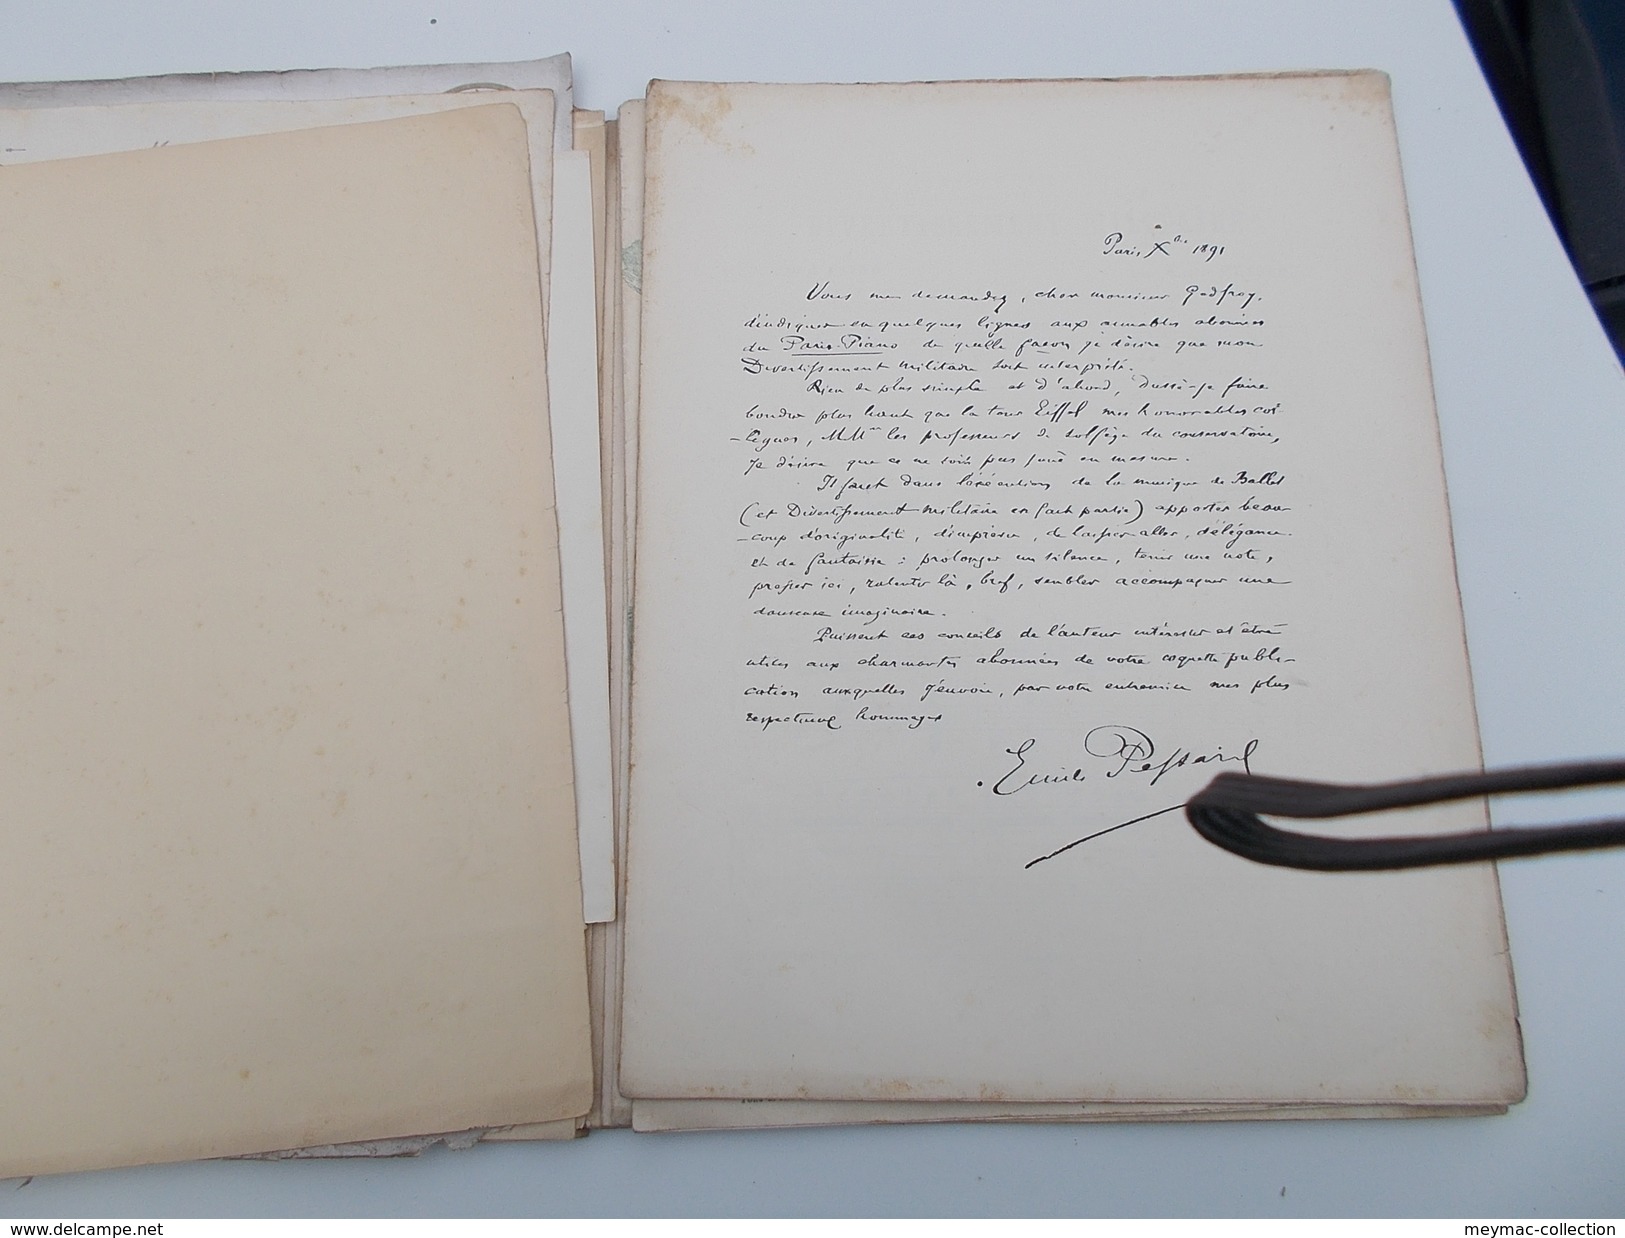 Paris, Xbre 1891
Vous me demandez, cher monsieur Godfroy,
d'indiquer en quelques lignes aux aimables abonnées
du Paris-Piano de quelle façon je désire que mon
Divertissement militaire soit interprété.
Rien de plus simple et d'abord, dussé-je faire
bondir plus haut que la tour Eiffel mes honorables col-
-lègues, MMrs les professeurs de solfège du conservatoire,
je désire que ce ne soit pas joué en mesure.
Il faut dans l'exécution de la musique de Ballet
(et Divertissement militaire en fait partie) apporter beau-
-coup d'originalité, d'imprévu, de laisser aller, d'élégance
et de fantaisie : prolonger un silence, tenir une note,
presser ici, ralentir là, bref, sembler accompagner une
danseuse imaginaire.
Puissent ces conseils de l'auteur intéresser et être
utiles aux charmantes abonnées de votre coquette publi-
cation auxquelles j'envoie, par votre entremise mes plus
respectueux hommages
Emile Pessard
www.delcampe.net
meymac-collection